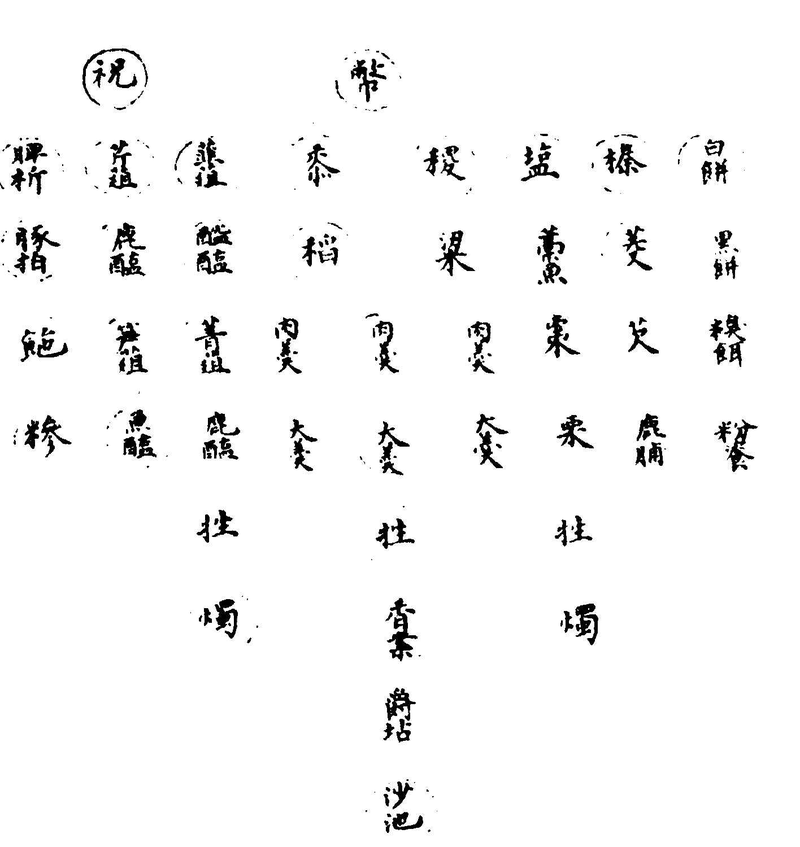 祝 幣
脾析 芹葅 韭葅 黍 稷 塩 榛 白餅
豚拍 鹿醢 醓醢 稻 粱 藁魚 菱 黑餅
笋葅 菁葅 肉羹 肉羹 肉羹 棗 芡 糗餌
糝 魚醢 鹿醢 大羹 大羹 大羹 栗 鹿脯 粉餈
牲 牲 牲
燭 香案 燭
爵坫
沙池